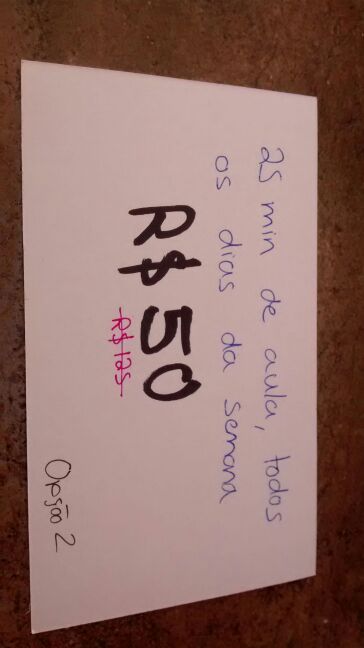 25 min de aula, todos
os dias da semana
R$50
R$125
Opção 2